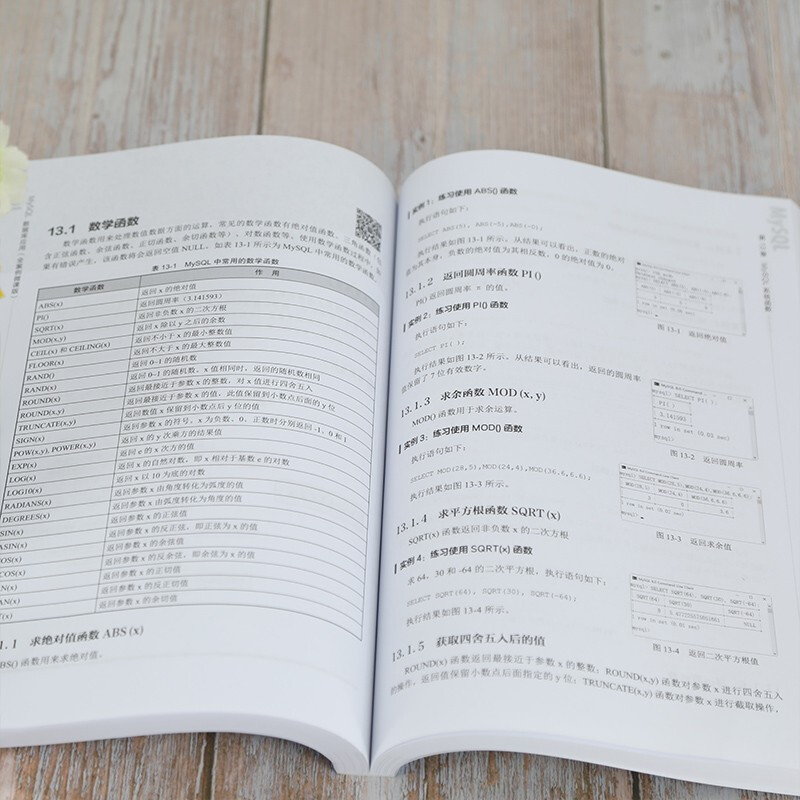 13.1 数学函数
数学函数用来处理数值数据方面的运算,常见的数学函数有绝对值函数、三角函数(包
含正弦函数、余弦函数、正切函数、余切函数等)、对数函数等。使用数学函数过程中,如
果有错误产生,该函数将会返回空值 NULL。如表 13-1 所示为 MySQL 中常用的数学函数。
表 13-1 MySQL 中常用的数学函数
数学函数 作 用
ABS(x) 返回 x 的绝对值
PI() 返回圆周率(3.141593)
SQRT(x) 返回非负数 x 的二次方根
MOD(x,y) 返回 x 除以 y 之后的余数
CEIL(x) 和 CEILING(x) 返回不小于 x 的最小整数值
FLOOR(x) 返回不大于 x 的最大整数值
RAND() 返回 0~1 的随机数
RAND(x) 返回 0~1 的随机数,x 值相同时,返回的随机数相同
ROUND(x) 返回最接近于参数 x 的整数,对 x 值进行四舍五入
ROUND(x,y) 返回最接近于参数 x 的值,此值保留到小数点后面的 y 位
TRUNCATE(x,y) 返回数值 x 保留到小数点后 y 位的值
SIGN(x) 返回参数 x 的符号,x 为负数、0、正数时分别返回 -1、0 和 1
POW(x,y), POWER(x,y) 返回 x 的 y 次乘方的结果值
EXP(x) 返回 e 的 x 次方的值
LOG(x) 返回 x 的自然对数,即 x 相对于基数 e 的对数
LOG10(x) 返回 x 以 10 为底的对数
RADIANS(x) 返回参数 x 由角度转化为弧度的值
DEGREES(x) 返回参数 x 由弧度转化为角度的值
SIN(x) 返回参数 x 的正弦值
ASIN(x) 返回参数 x 的反正弦,即正弦为 x 的值
COS(x) 返回参数 x 的余弦值
COS(x) 返回参数 x 的反余弦,即余弦为 x 的值
AN(x) 返回参数 x 的正切值
AN(x) 返回参数 x 的反正切值
T(x) 返回参数 x 的余切值
1.1 求绝对值函数 ABS (x)
BS() 函数用来求绝对值。
MySQL
实例 1:练习使用 ABS() 函数
执行语句如下:
SELECT ABS(5), ABS(-5),ABS(-0);
执行结果如图 13-1 所示。从结果可以看出,正数的绝对
值为其本身,负数的绝对值为其相反数,0 的绝对值为 0。
图 13-1 返回绝对值
13.1.2 返回圆周率函数 PI ()
PI() 返回圆周率 π 的值。
实例 2:练习使用 PI() 函数
执行语句如下:
SELECT PI( );
执行结果如图 13-2 所示。从结果可以看出,返回的圆周率
值保留了 7 位有效数字。
mysql> SELECT PI( );
3.141593
1 row in set (0.03 sec)
mysql>
图 13-2 返回圆周率
13.1.3 求余函数 MOD (x, y)
MOD() 函数用于求余运算。
实例 3:练习使用 MOD() 函数
执行语句如下:
SELECT MOD(28,5),MOD(24,4),MOD(36.6,6.6);
执行结果如图 13-3 所示。
图 13-3 返回求余值
13.1.4 求平方根函数 SQRT (x)
SQRT(x) 函数返回非负数 x 的二次方根
实例 4:练习使用 SQRT(x) 函数
求 64、30 和 -64 的二次平方根,执行语句如下:
SELECT SQRT(64), SQRT(30), SQRT(-64);
执行结果如图 13-4 所示。
图 13-4 返回二次平方根值
13.1.5 获取四舍五入后的值
ROUND(x) 函数返回最接近于参数 x 的整数;ROUND(x,y) 函数对参数 x 进行四舍五入
的操作,返回值保留小数点后面指定的 y 位;TRUNCATE(x,y) 函数对参数 x 进行截取操作,